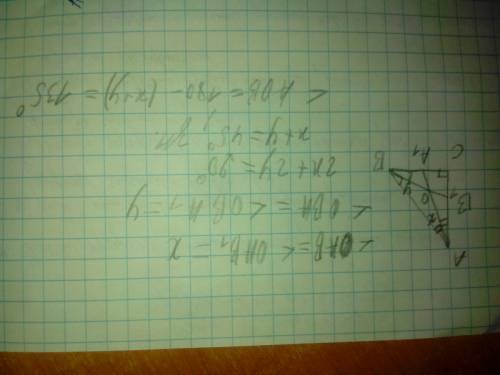 < OAB = < OAB₁ = x
< OBA = < OBA₁ = y
2x + 2y = 90°
x + y = 45°,
< AOB = 180 - (x+y) = 135°
A
B₁
C
A₁
B
O
x
y